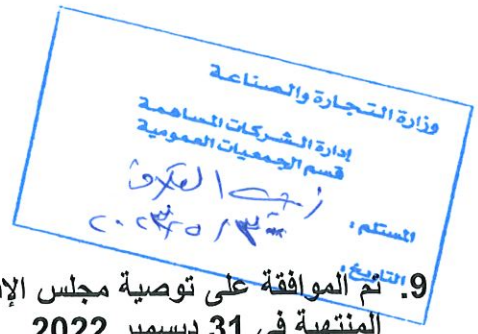 وزارة التجارة والصناعة
إدارة الشركات المساهمة
قسم الجمعيات العمومية
المستلم :
التاريخ :
9. تم الموافقة على توصية مجلس الإ
المنتهية في 31 ديسمبر 2022